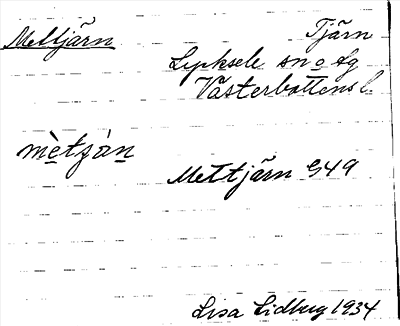 Mettjärn Tjärn
Lycksele sn o lg
Västerbottens l.
mètjàn
Mettjärn G49
Lisa Lidberg 1934